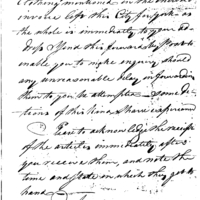 Clothing mentioned in the annexed
invoice left this City for York as
the whole is immediately to your ad-
dress I send this forward by Post to
enable you to make enquiry should
any unreasonable delay in forwarding
them to you be attempted some
tions of this kind I have experienced
Please to acknowledge the receipt
of the articles immediately after
you receive them, and note the
time and state in which they got to
hand